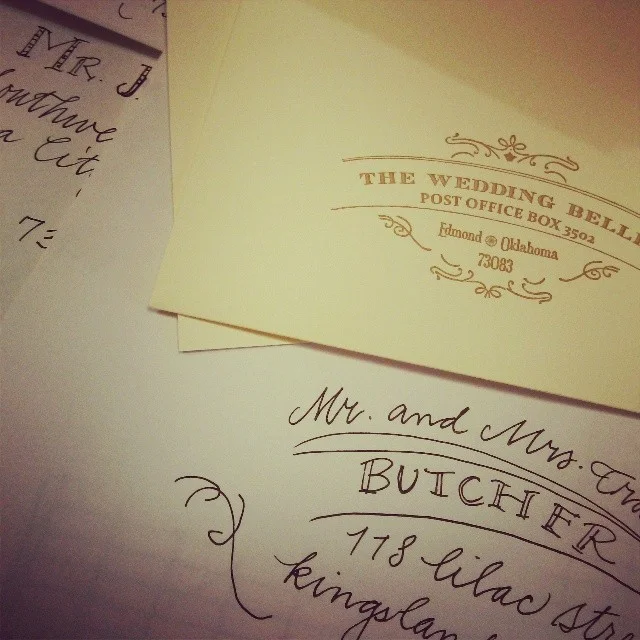 MR. J.
7
THE WEDDING BELL
POST OFFICE BOX 3502
Edmond Oklahoma
73083
Mr. and Mrs. Tra
BUTCHER
118 lilac str
kingslan